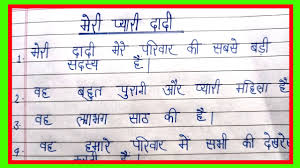 मेरी प्यारी दादी
1. मेरी दादी मेरे परिवार की सबसे बड़ी
सदस्य है।
2. वह बहुत पुरानी और प्यारी महिला है
3. वह लगभग साठ की है।
4. वह हमारे परिवार में सभी की देखरेख